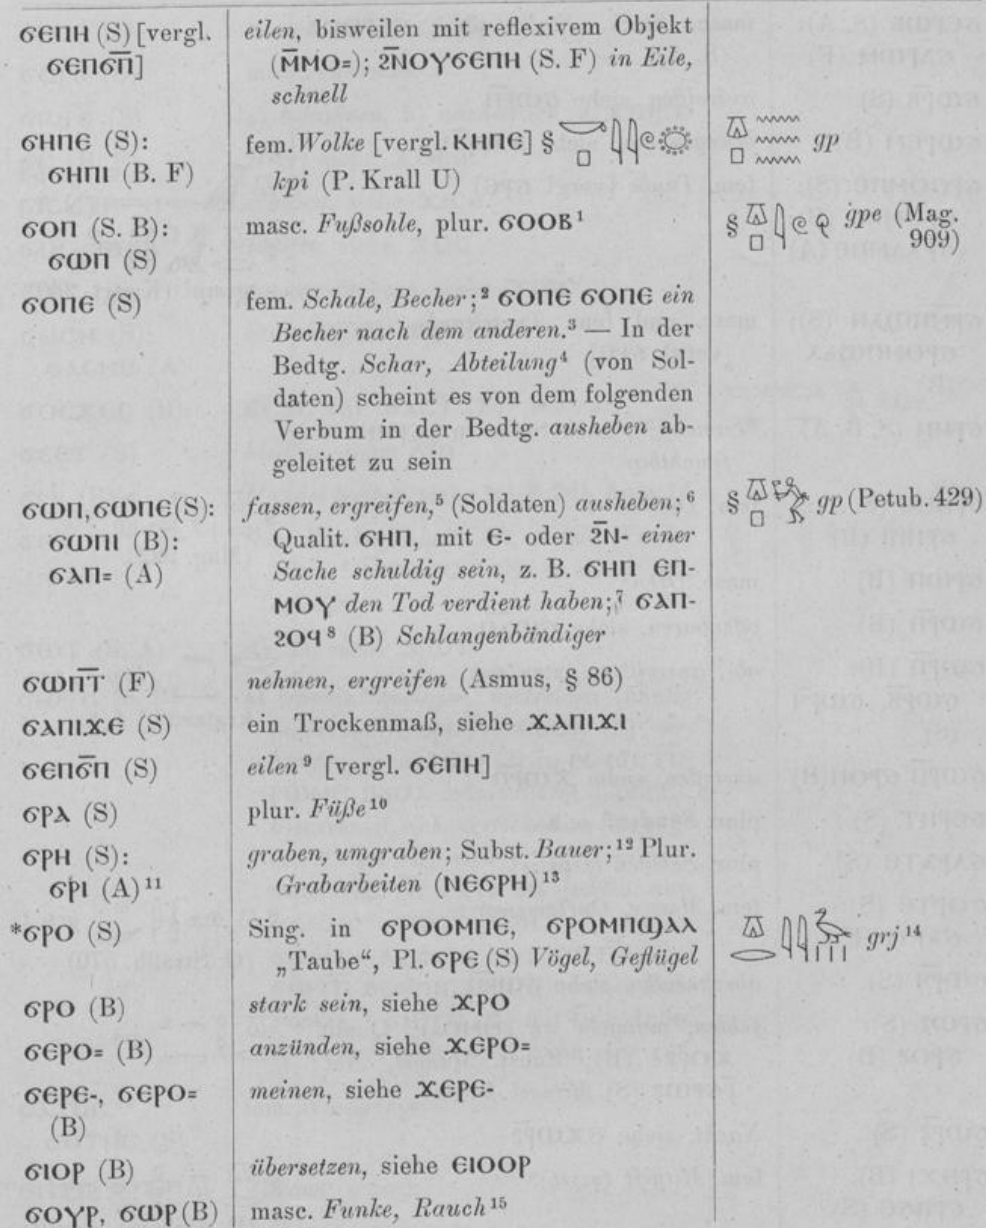 ϭⲉⲡⲏ (S) [vergl. eilen, bisweilen mit reflexivem Objekt
ϭⲉⲡϭⲡ̅] (ⲙ̅ⲙⲟ=); ϩ̅ⲛⲟⲩϭⲉⲡⲏ (S. F) in Eile,
schnell
ϭⲏⲡⲉ (S): fem. Wolke [vergl. ⲕⲏⲡⲉ] § gp
ϭⲏⲡⲓ (B. F) kpi (P. Krall U)
ϭⲟⲡ (S. B): masc. Fußsohle, plur. ϭⲟⲟⲃ¹ § g̀pe (Mag.
ϭⲱⲡ (S) 909)
ϭⲟⲡⲉ (S) fem. Schale, Becher;² ϭⲟⲡⲉ ϭⲟⲡⲉ ein
Becher nach dem anderen.³ — In der
Bedtg. Schar, Abteilung⁴ (von Sol-
daten) scheint es von dem folgenden
Verbum in der Bedtg. ausheben ab-
geleitet zu sein
ϭⲱⲡ, ϭⲱⲡⲉ (S): fassen, ergreifen,⁵ (Soldaten) ausheben;⁶ § gp (Petub. 429)
ϭⲱⲡⲓ (B): Qualit. ϭⲏⲡ, mit ⲉ- oder ϩ̅ⲛ- einer
ϭⲁⲡ= (A) Sache schuldig sein, z. B. ϭⲏⲡ ⲉⲡ-
ⲙⲟⲩ den Tod verdient haben;⁷ ϭⲁⲡ-
ϩⲟϥ⁸ (B) Schlangenbändiger
ϭⲱⲡ̅ⲧ̅ (F) nehmen, ergreifen (Asmus, § 86)
ϭⲁⲡⲓϫⲉ (S) ein Trockenmaß, siehe ϫⲁⲡⲓϫⲓ
ϭⲉⲡϭ̅ⲡ (S) eilen⁹ [vergl. ϭⲉⲡⲏ]
ϭⲣⲁ (S) plur. Füße¹⁰
ϭⲣⲏ (S): graben, umgraben; Subst. Bauer;¹² Plur.
ϭⲣⲓ (A)¹¹ Grabarbeiten (ⲛⲉϭⲣⲏ)¹³
*ϭⲣⲟ (S) Sing. in ϭⲣⲟⲟⲙⲡⲉ, ϭⲣⲟⲙⲡϣⲁⲗ grj¹⁴
„Taube“, Pl. ϭⲣⲉ (S) Vögel, Geflügel
ϭⲣⲟ (B) stark sein, siehe ϫⲣⲟ
ϭⲉⲣⲟ= (B) anzünden, siehe ϫⲉⲣⲟ=
ϭⲉⲣⲉ-, ϭⲉⲣⲟ= meinen, siehe ϫⲉⲣⲉ-
(B)
ϭⲓⲟⲣ (B) übersetzen, siehe ⲉⲓⲟⲟⲣ
ϭⲟⲩⲣ, ϭⲱⲣ (B) masc. Funke, Rauch¹⁵